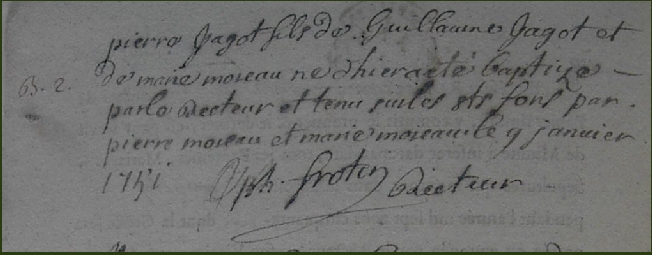 pierre Jagot fils de Guillaume Jagot et
B. 2. de marie moreau ne d hier a eté baptize
par le Recteur et tenu sur les sts fons par
pierre moreau et marie moreau le 9 janvier
1751. Jph. Recteur